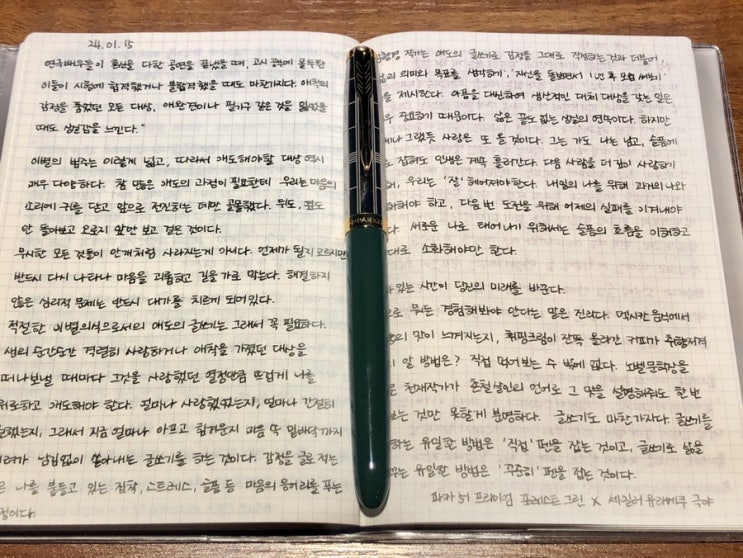 24.01.15
연극배우들이 혼신을 다한 공연을 끝냈을 때, 고시 공부에 몰두한
이들이 시험에 합격했거나 불합격했을 때도 마찬가지다. 애착의
감정을 품었던 모든 대상, 애완견이나 필기구 같은 것을 잃었을
때도 상실감을 느낀다."
이별의 범주는 이렇게 넓고, 따라서 애도해야할 대상 역시
매우 다양하다. 참 많은 애도의 과정이 필요한데 우리는 마음의
소리에 귀를 닫고 앞으로 전진하는 데만 골몰했다. 뒤도, 옆도
안 돌아보고 오로지 앞만 보고 걷은 것이다.
무시한 모든 것들이 안개처럼 사라지는게 아니다. 언제가 될지 모르지만
반드시 다시 나타나 마음을 괴롭히고 길을 가로 막는다. 해결하지
않은 심리적 문제는 반드시 대가를 치르게 되어있다.
적절한 이별의식으로서의 애도의 글쓰기는 그래서 꼭 필요하다.
생의 순간순간 격렬히 사랑하거나 애착을 가졌던 대상을
떠나보낼 때마다 그것을 사랑했던 열정만큼 뜨겁게 나를
위로하고 애도해야 한다. 얼마나 사랑했었는지, 얼마나 간절히
했는지, 그래서 지금 얼마나 아프고 힘겨운지 마음 속 밑바닥까지
남김없이 쏟아내는 글쓰기를 하는 것이다. 감정을 글로 적는
은 나를 붙들고 있는 집착, 스트레스, 슬픔 등 마음의 응어리를 푸는
정이다.
PARKER
작가는 애도의 글쓰기로 감정을 그대로 직면하는 것과 더불어
의 의미와 목표를 생각하기', '자신을 돌보면서 1년 후 모습 써보기'
를 제시한다. 아픔을 대변하여 생산적인 대치 대상을 갖는 일은
우 중요하기 때문이다. 삶은 끝도 없는 상실의 연속이다. 하지만
나 그렇듯 사랑은 또 올 것이다. 그는 가도 나는 남고, 슬픔에
잠겨도 인생은 계속 흘러간다. 다음 사람을 더 깊이 사랑하기
해, 우리는 '잘' 헤어져야한다. 내일의 나를 위해 과거의 나와
해해야 하고, 다음 번 도전을 위해 어제의 실패를 이겨내야
다. 새로운 나로 태어나기 위해서는 슬픔의 흐름을 이해하고
대로 소화해야만 한다.
있는 시간이 당신의 미래를 바꾼다.
으로 뭐든 경험해봐야 안다는 말은 진리다. 멕시칸 음식에서
의 맛이 느껴지는지, 휘핑크림이 잔뜩 올라간 커피가 취향저격
지 알 방법은? 직접 먹어보는 수 밖에 없다. 노벨문학상을
은 천재작가가 촌철살인의 언어로 그 맛을 설명해줘도 한 번
보는 것만 못할게 분명하다. 글쓰기도 마찬가지다. 글쓰기를
하는 유일한 방법은 '직접' 펜을 잡는 것이고, 글쓰기로 삶을
꾸는 유일한 방법은 '꾸준히' 펜을 잡는 것이다.
파카 51 프리미엄 포레스트 그린 X 세일러 유라메쿠 극야